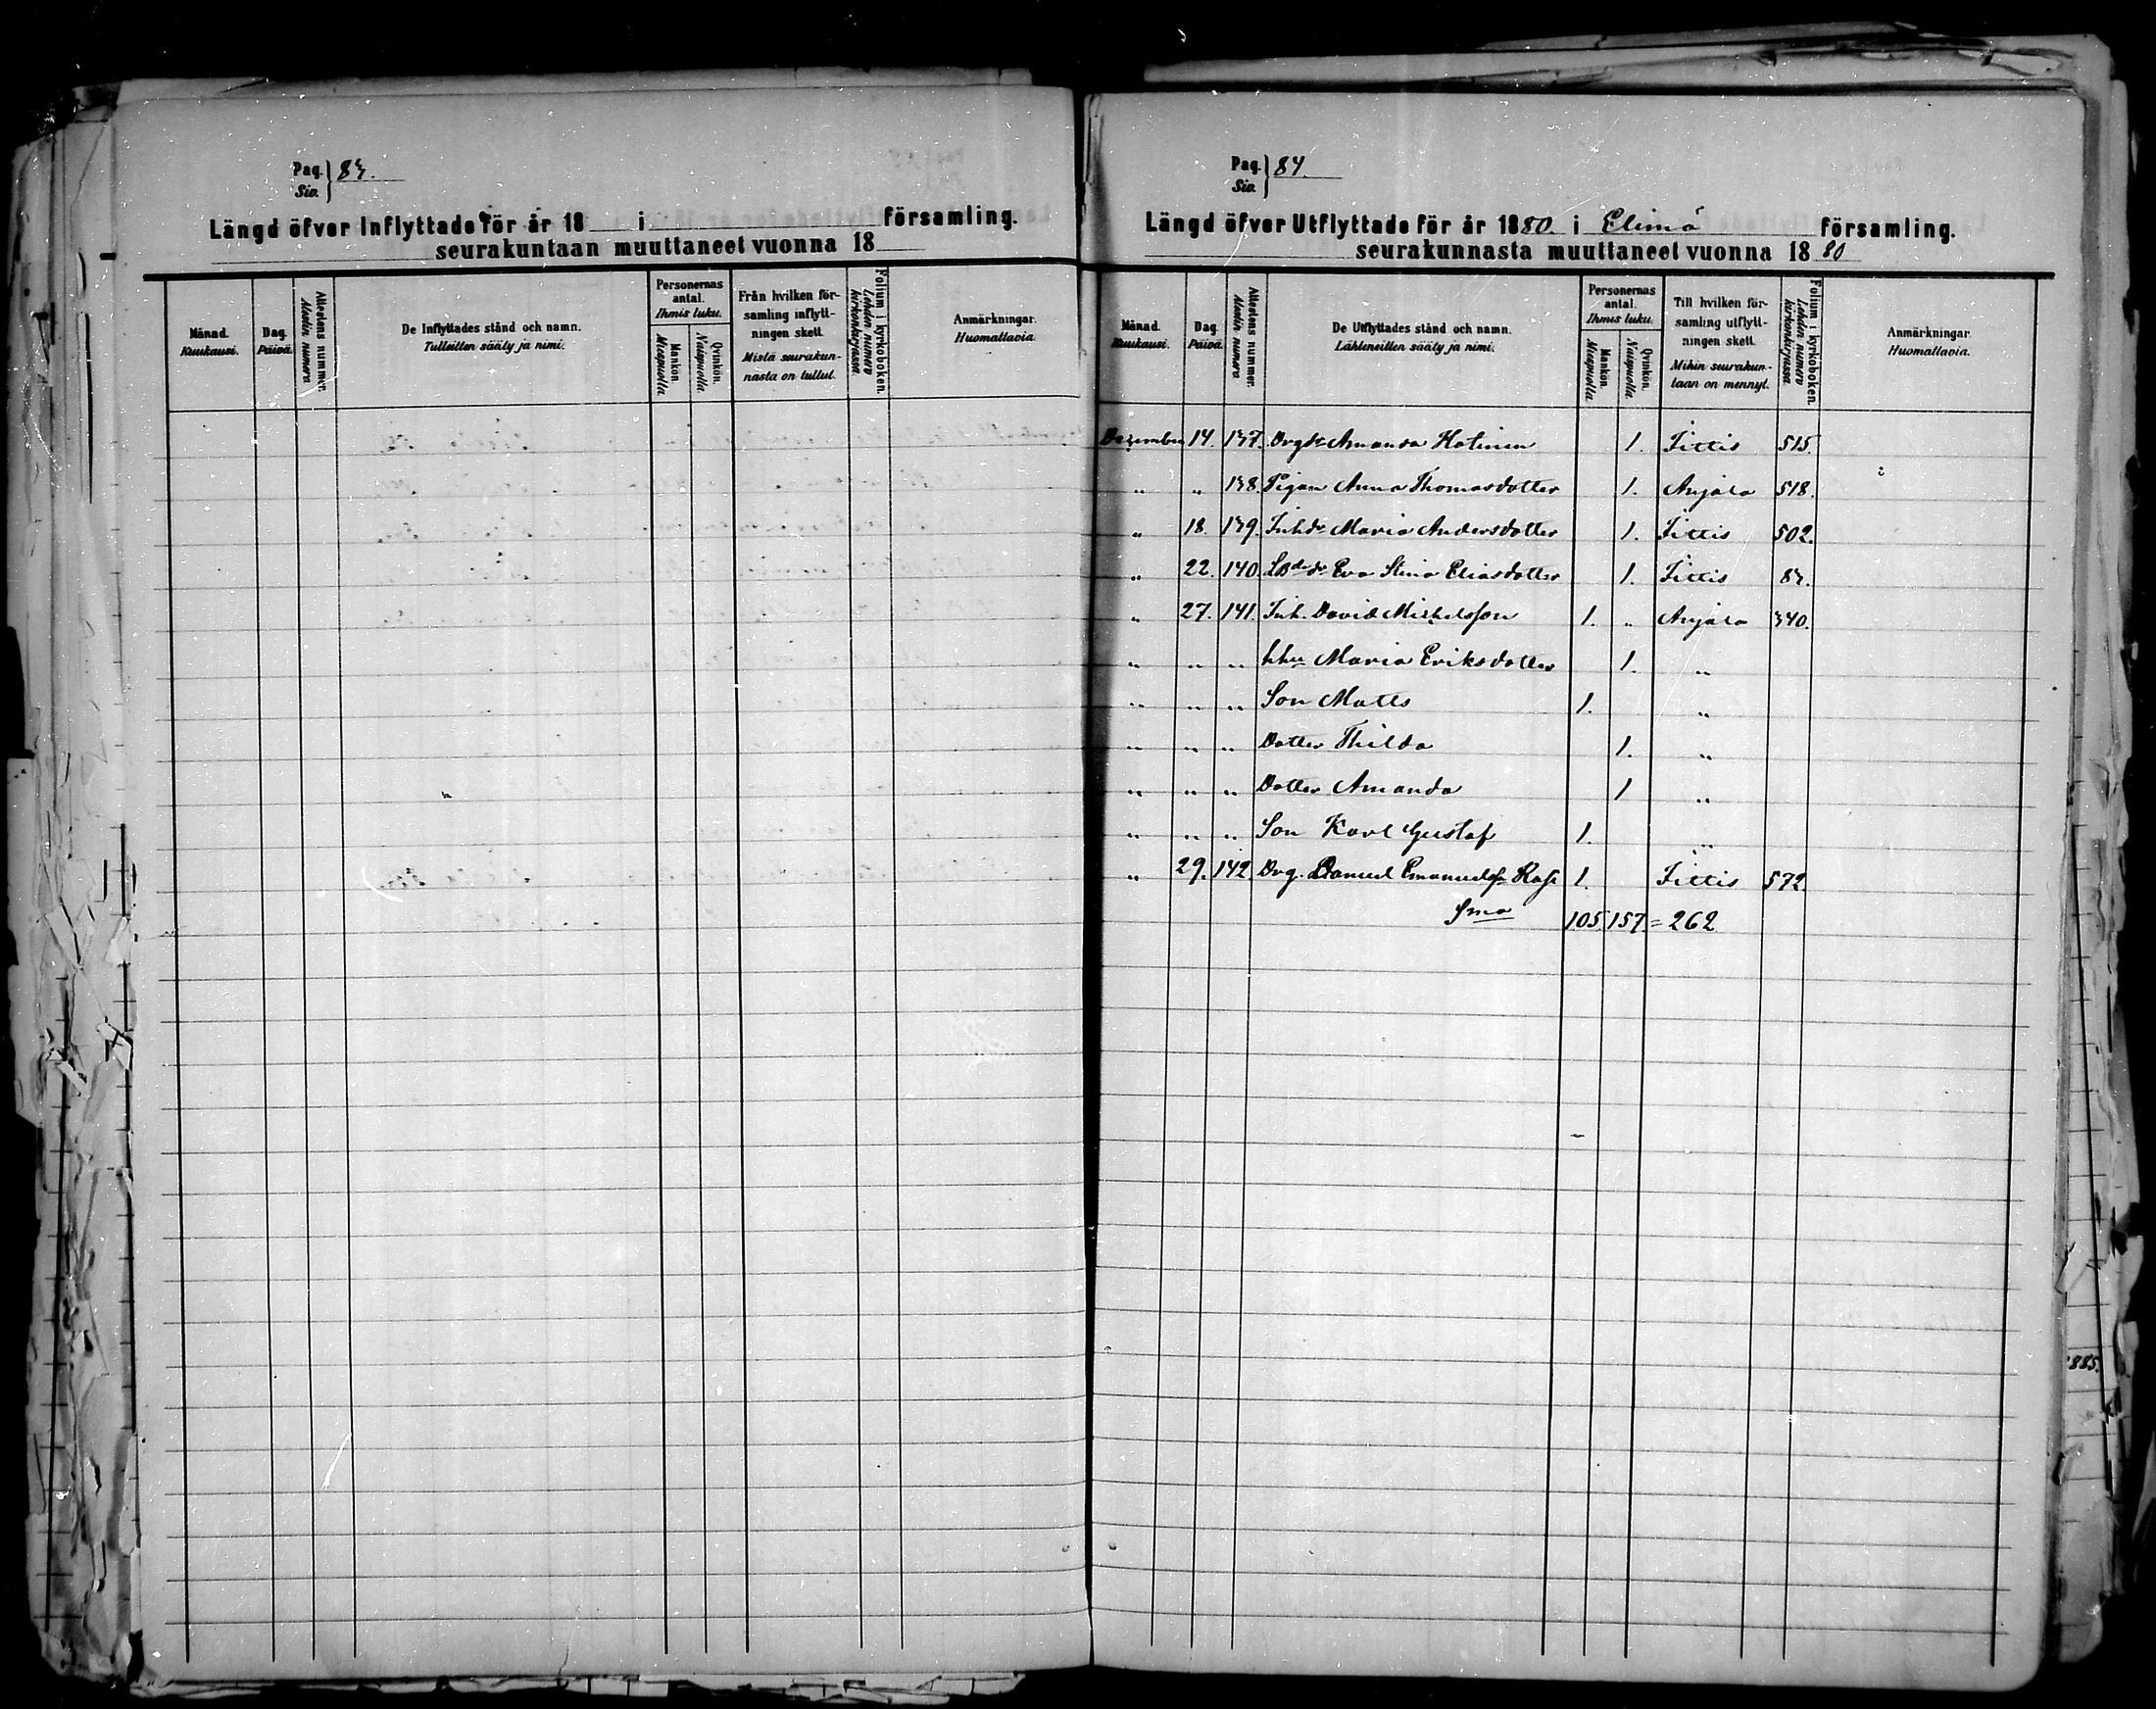 Pag. 83.
Siv.
Längd öfver Inflyttade för år 18 i församling.
seurakuntaan muuttaneet vuonna 18
Månad. Kuukausi.
Dag. Päivä.
Attestens nummer. Atestin numero.
De Inflyttades stånd och namn. Tulleitten sääty ja nimi.
Personernas antal. Ihmis luku.
Mankön. Miespuolia
Qvinkön. Naispuolia.
Från hvilken församling inflyttningen skett. Mistä seurakunnasta on tullut.
Folium i kyrkoboken. Lehden numero kirkonkirjassa.
Anmärkningar. Huomattavia.
Pag. 84.
Siv.
Längd öfver Utflyttade för år 1880 i Elimä församling.
seurakunnasta muuttaneet vuonna 1880
Månad. Kuukausi.
Dag. Päivä.
Attestens nummer. Atestin numero.
De Utflyttades stånd och namn. Lähteneitten sääty ja nimi.
Personernas antal. Ihmis luku.
Mankön. Miespuolia
Qvinkön. Naispuolia.
Till hvilken församling utflyttningen skett. Mihin seurakuntaan on mennyt.
Folium i kyrkoboken. Lehden numero kirkonkirjassa.
Anmärkningar. Huomattavia.
December 14. 137. Amanda Hatinen 1. Iittis 515.
" " 138. Pigan Anna Thomasdotter 1. Anjala 518.
" 18. 139. Inhdr Maria Andersdotter 1. Iittis 502.
" 22. 140. Eva Stina Eliasdotter 1. Iittis 83.
" 27. 141. Inh. David Michelsson 1. " Anjala 340.
" " " hhu Maria Eriksdotter 1. "
" " " Son Matts 1. "
" " " Dotter Thilda 1. "
" " " Dotter Amanda 1 "
" " " Son Karl Gustaf 1. "
" 29. 142. Drg. Emanuelsn 1. Iittis 572.
Sma 105. 157. = 262
1885.